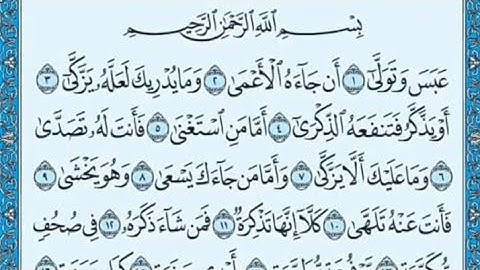 بِسْمِ اللَّهِ الرَّحْمَٰنِ الرَّحِيمِ
عَبَسَ وَتَوَلَّىٰ ١ أَن جَاءَهُ الْأَعْمَىٰ ٢ وَمَا يُدْرِيكَ لَعَلَّهُ يَزَّكَّىٰ ٣
أَوْ يَذَّكَّرُ فَتَنفَعَهُ الذِّكْرَىٰ ٤ أَمَّا مَنِ اسْتَغْنَىٰ ٥ فَأَنتَ لَهُ تَصَدَّىٰ
٦ وَمَا عَلَيْكَ أَلَّا يَزَّكَّىٰ ٧ وَأَمَّا مَن جَاءَكَ يَسْعَىٰ ٨ وَهُوَ يَخْشَىٰ ٩
فَأَنتَ عَنْهُ تَلَهَّىٰ ١٠ كَلَّا إِنَّهَا تَذْكِرَةٌ ١١ فَمَن شَاءَ ذَكَرَهُ ١٢ فِي صُحُفٍ